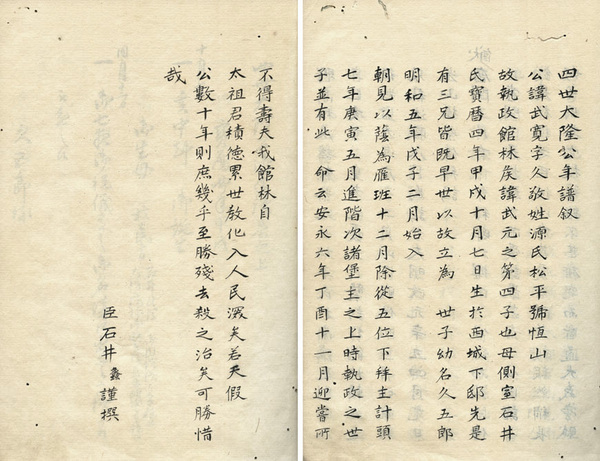 四世大隆公年譜叙
公諱武寛字久敬姓源氏松平號恆山
故執政館林矦諱武元之第四子也母側室石井
氏寶曆四年甲戌十月七日生於西城下邸先是
有三兄皆既早世以故立為 世子幼名久五郎
明和五年戊子二月始入
朝見以蔭為雁班十二月除從五位下拜主計頭
七年庚寅五月進階次諸堡主之上時執政之世
子並有此 命云安永六年丁酉十一月迎嘗所
不得壽夫我館林自
太祖君積德累世教化入人民深矣若天假
公數十年則庶幾乎至勝殘去殺之治矣可勝惜
哉
臣石井 謹撰